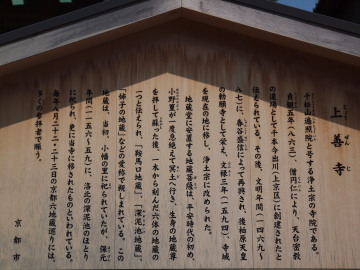 上善寺
じょうぜんじ
千松山遍照院と号する浄土宗の寺院である。
貞観五年(八六三)、僧円仁により、天台密教
の道場として千本今出川(上京区)に創建されたと
伝えられている。その後、文明年間(一四六九〜
八七)に、春谷盛信によって再興され、後柏原天皇
の勅願寺として栄え、文禄三年(一五九四)寺域
を現在の地に移し、浄土宗に改められた。
地蔵堂に安置する地蔵菩薩は、平安時代の初め、
小野篁が一度息絶えて冥土へ行き、生身の地蔵尊
を拝して蘇った後、一木から刻んだ六体の地蔵の
一つと伝えられ、「鞍馬口地蔵」、「深泥池地蔵」、
「姉子の地蔵」などの愛称で親しまれている。この
地蔵は、当初、小幡の里に祀られていたが、保元
年間(一一五六〜五九)に、洛北の深泥池のほとり
に祀られ、更に当寺に移されたものといわれている。
毎年八月二十二・二十三日の京都六地蔵巡りには、
多くの参拝者で賑う。
京都市